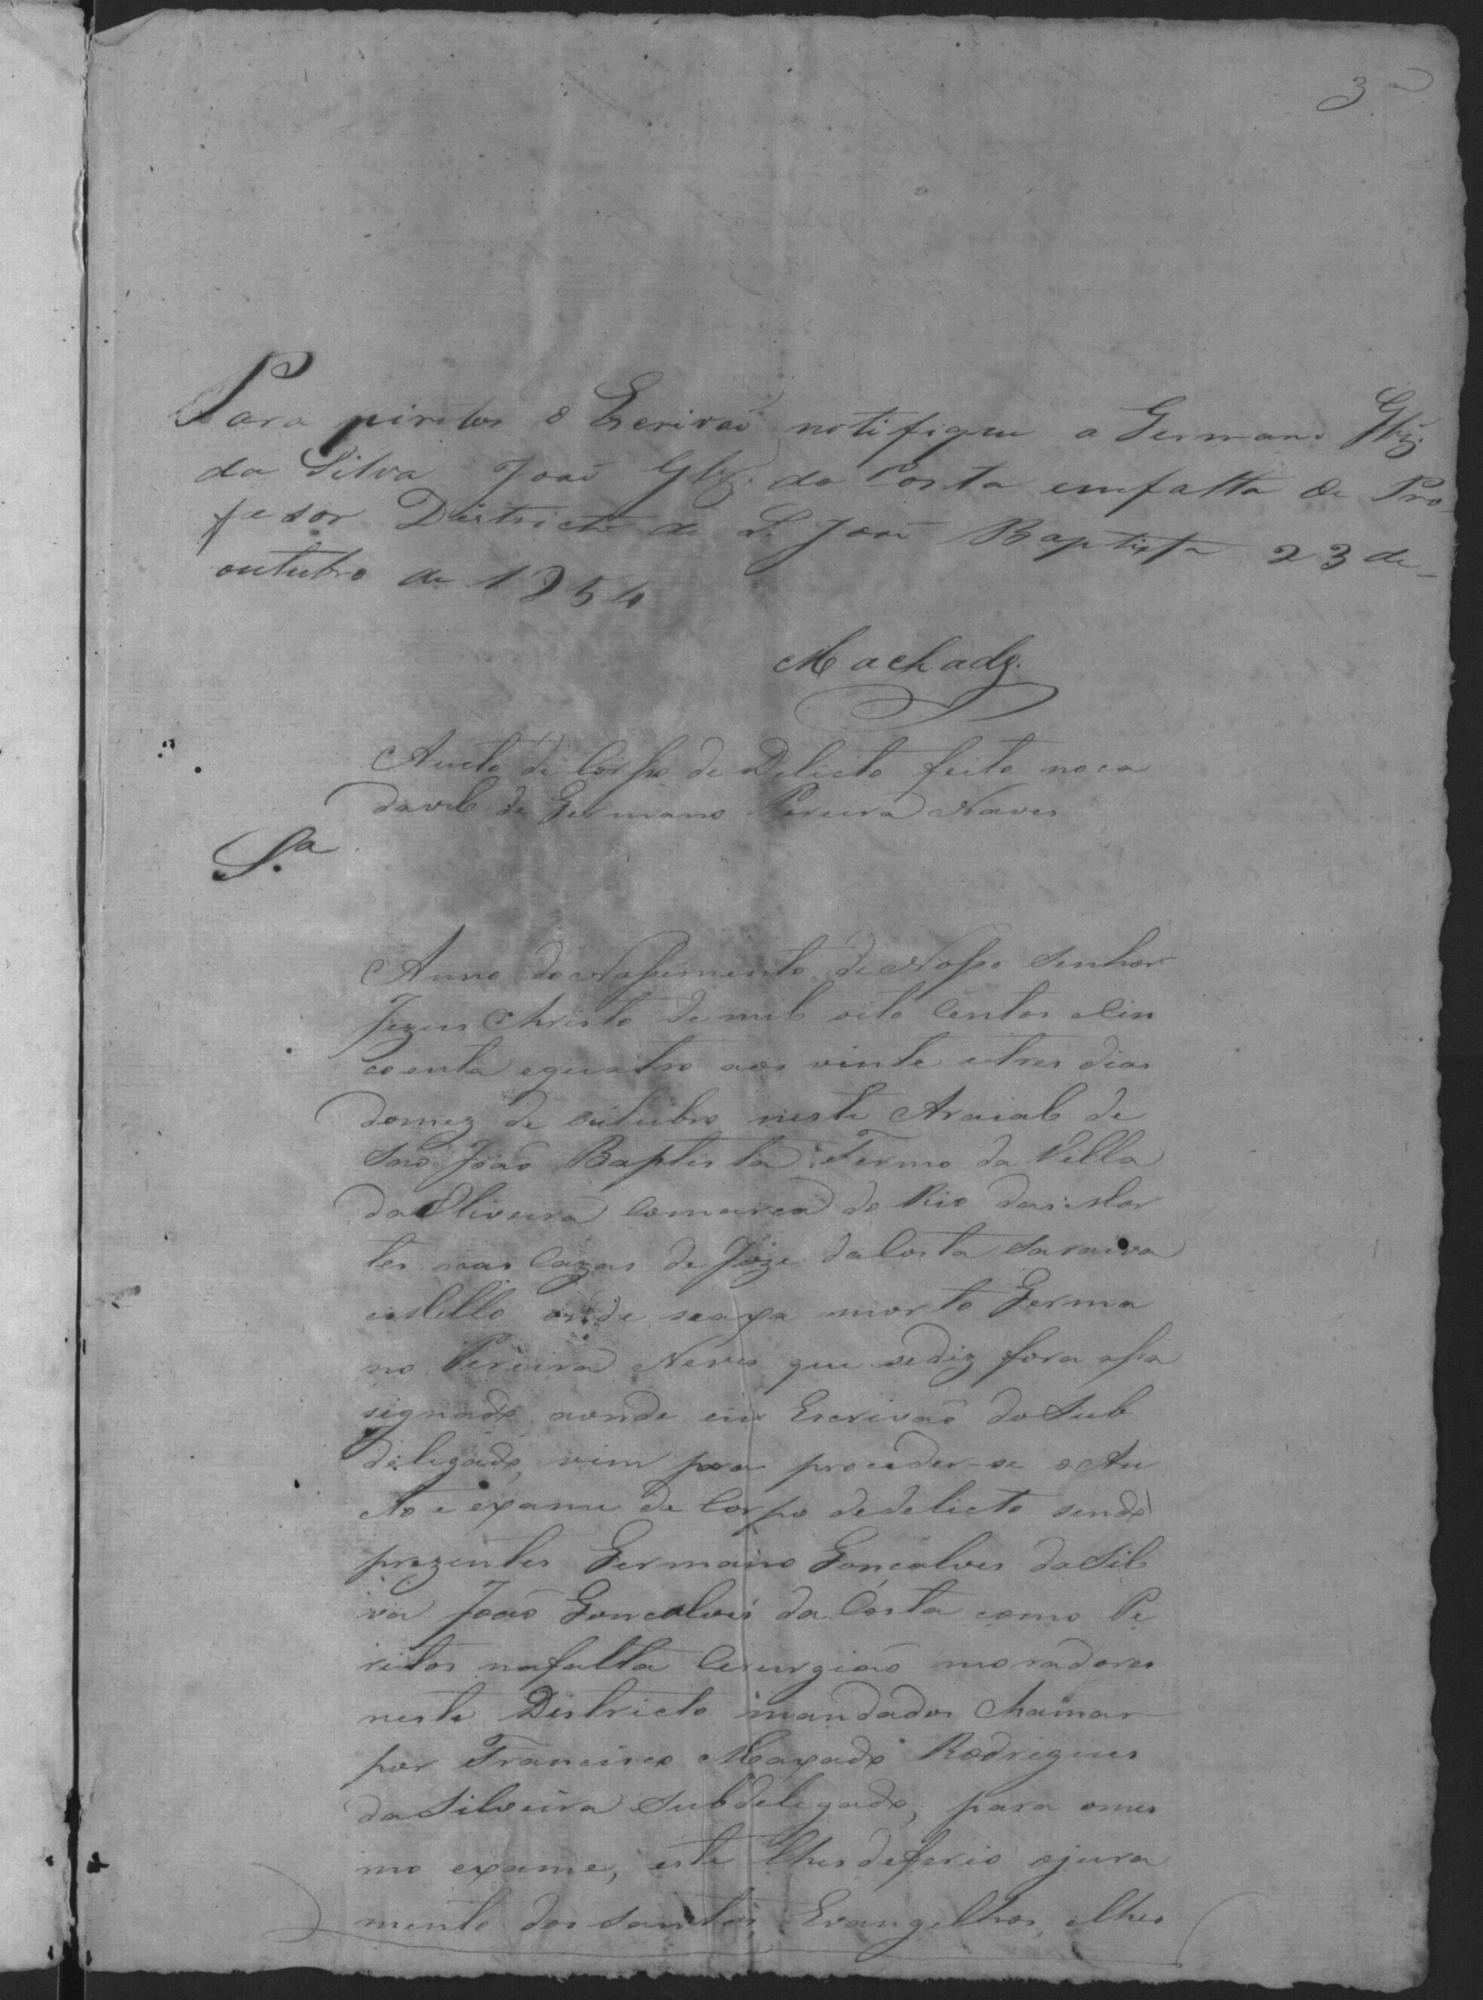 3
Para piritos o Escrivaõ notifique a Germano Glz
da Silva Joaõ Glz. da Costa emfalta de Pro
fesor Districto de S. Joaõ Baptista 23 de
outubro de 1854
Machado
Aucto de Corpo de Delicto feito no ca
davel de Germano Pereira Naves
S.a
Anno do Nassimento de Nosso Senhor
Jezus Christo de mil oito Centos e Cin
coenta equatro aos vinte etres dias
domez de outubro neste Araial de
Saõ Joaõ Baptista Termo da Villa
da Oliveira Comarca do Rio das Mor
tes nas Cazas de Joze daCosta Saraiva
castello onde seaxa morto Germa
no Pereira Neves que sediz fora assa
signado aonde eu Escrivaõ do Sub
delegado, vim para proceder-se o Au
cto e exame de Corpo dedelicto sendo
prezentes Germano Gonçalves da Sil
va Joaõ Goncalves da Costa como Pe
ritos nafalta Cerurgiaõ moradores
neste Districto mandados chamar
por Francisco Maxado Rodrigues
da Silveira Subdelegado, para omes
mo exame, este lhes deferio ojura
mento dos Santos Evangelhos, elhes